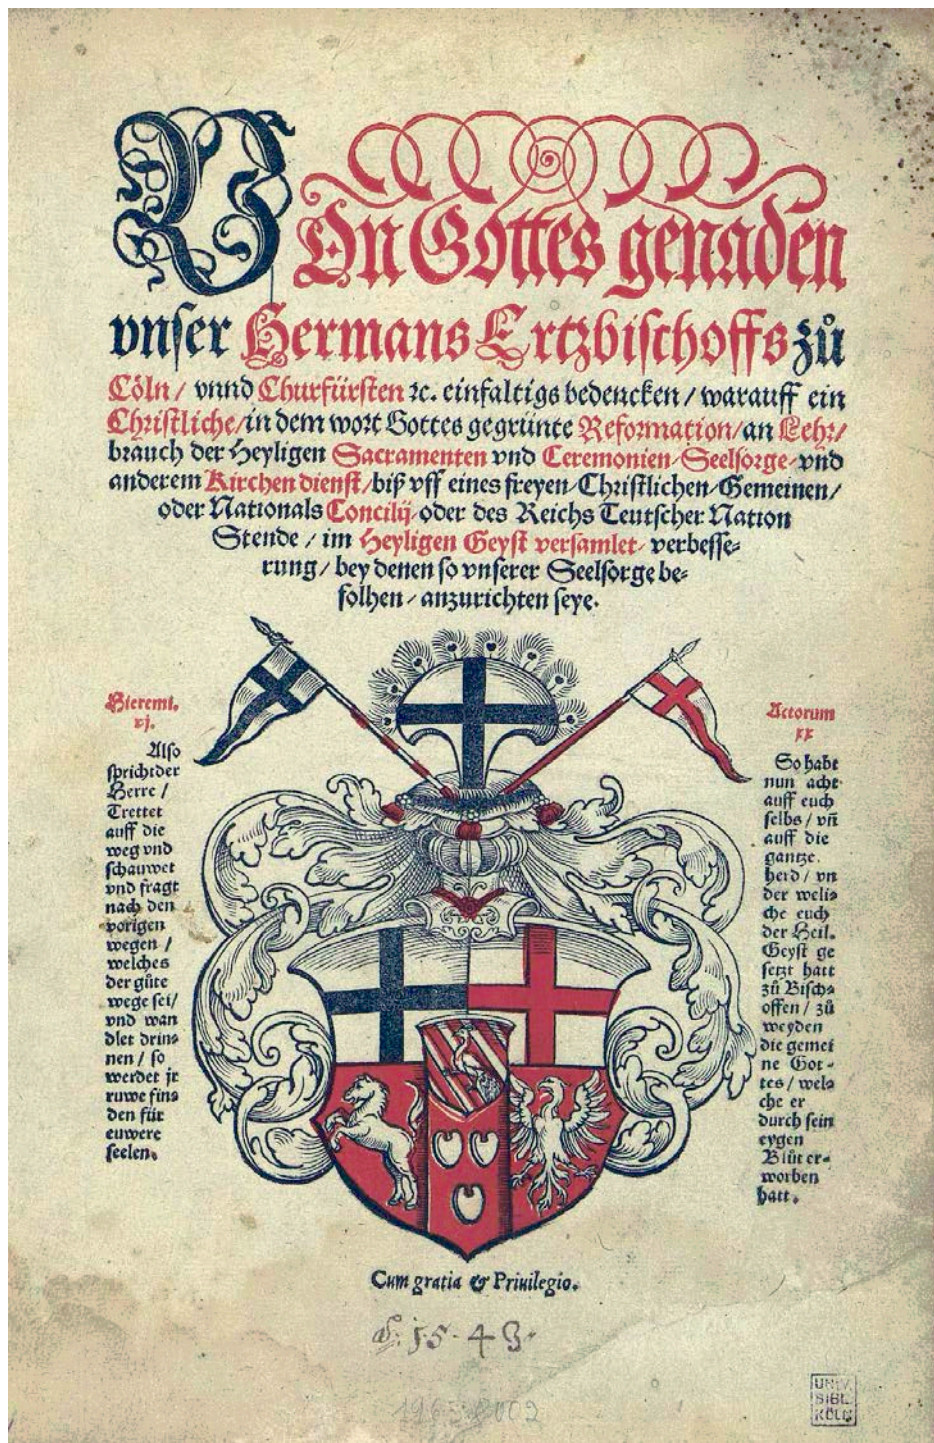 VOn Gottes genaden
vnser Hermans Ertzbischoffs zů
Cöln / vnnd Churfürsten ꝛc. einfaltigs bedencken / warauff ein
Christliche / in dem wort Gottes gegrünte Reformation / an Lehr /
brauch der Heyligen Sacramenten vnd Ceremonien / Seelsorge / vnd
anderem Kirchen dienst / biß vff eines freyen / Christlichen / Gemeinen /
oder Nationals Concilij / oder des Reichs Teutscher Nation
Stende / im Heyligen Geyst versamlet / verbesse-
rung / bey denen so vnserer Seelsorge be-
folhen / anzurichten seye.
Hieremi.
vj.
Also
spricht der
Herre /
Trettet
auff die
weg vnd
schauwet
vnd fragt
nach den
vorigen
wegen /
welches
der gůte
wege sei /
vnd wan
dlet drin-
nen / so
werdet jr
ruwe fin-
den für
euwere
seelen.
Actorum
xx
So habt
nun acht
auff euch
selbs / vñ
auff die
gantze
herd / vn
der wel-
che euch
der Heil.
Geyst ge
setzt hatt
zů Bisch-
offen / zů
weyden
die gemei
ne Got-
tes / wel-
che er
durch sein
eygen
Blůt er-
worben
hatt.
Cum gratia & Priuilegio.
1543
UNIV.
BIBL.
KÖLN